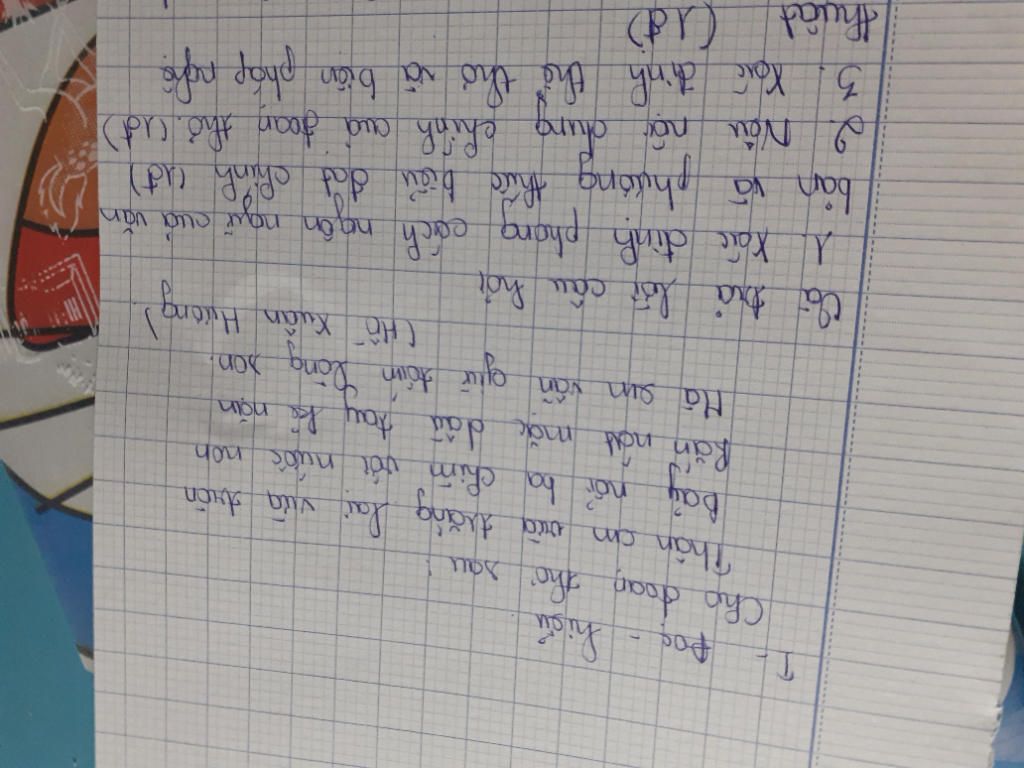 I - Đọc - hiểu
Cho đoạn thơ sau:
Thân em vừa trắng lại vừa tròn
Bảy nổi ba chìm với nước non
Rắn nát mặc dầu tay kẻ nặn
Mà em vẫn giữ tấm lòng son.
(Hồ Xuân Hương)
Và trả lời câu hỏi
1. Xác định phong cách ngôn ngữ của văn
bản và phương thức biểu đạt chính (1đ)
2. Nêu nội dung chính của đoạn thơ. (1đ)
3. Xác định thể thơ và biện pháp nghệ
thuật (1đ)